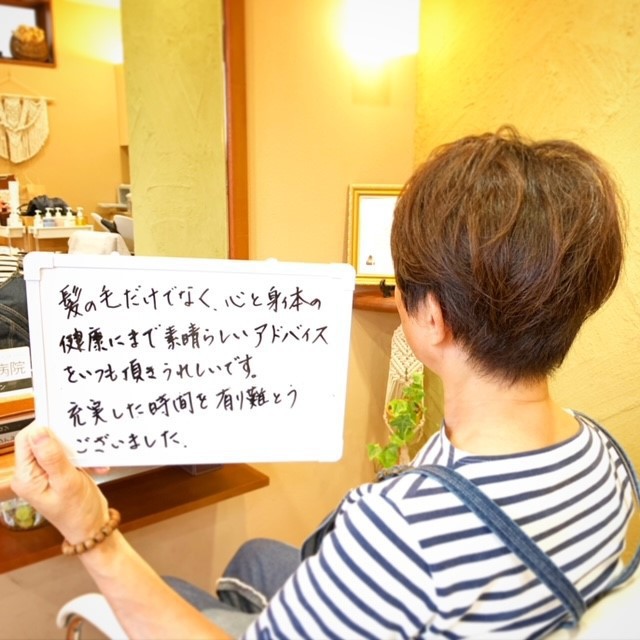 髪の毛だけでなく、心と身体の
健康にまで素晴らしいアドバイス
をいつも頂きうれしいです。
充実した時間を有り難とう
ございました。
病院